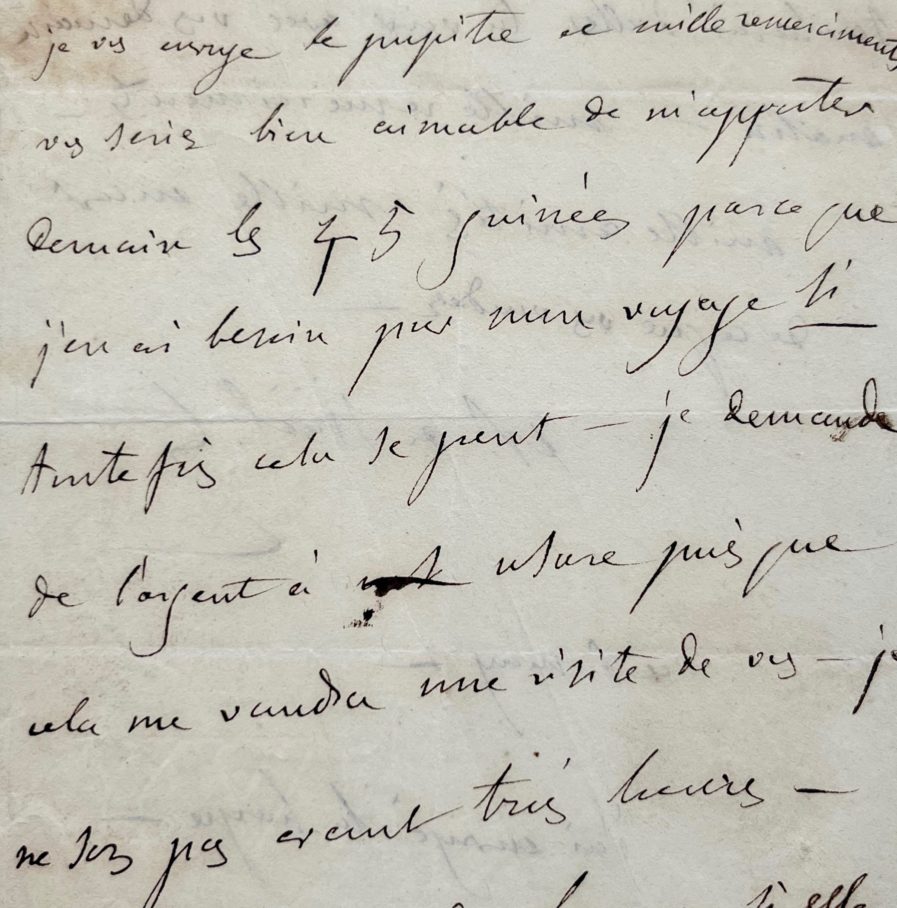 je vs envoye le pupitre et mille remerciments
vs seriez bien aimable de m'apporter
demain les 45 guinées parce que
j'en ai besoin pour mon voyage si
toutefois cela se peut — je demande
de l'argent à usure puisque
cela me vaudra une visite de vs — je
ne sors pas avant trois heures —
si elle